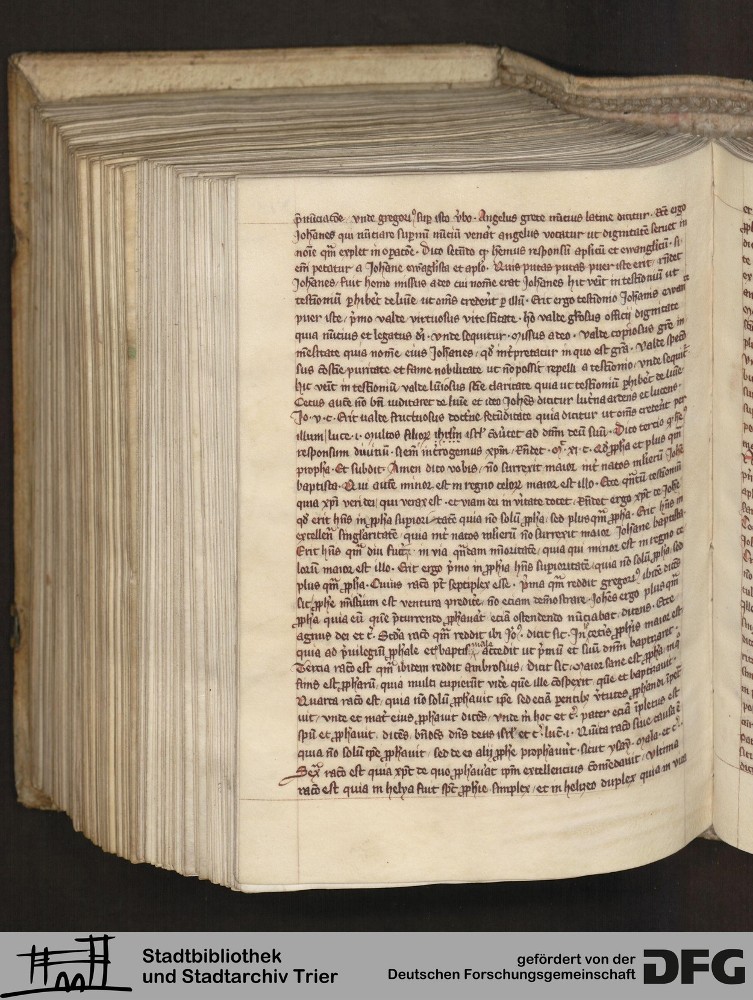 pnūciacōe / vnde gregori⁹ sup isto v̄bo · Angelus grece nūcius latine dicitur · Rc̄e ergo
Johanes qui nūciare supnū nūciū venāt angelus vocatur ut dignitatē seruet in
noīe qm̄ explet in opacōe · Dico secūdo ꝙ hēmus responsū aplicū et ewangℓicū · si
em̄ petatur a Johāne ewāgℓista et aplo · Quis putas putas puer iste erit / rn̄det
Johanes / fuit homo missus a deo cui nomē erat Johanes hic veīt in testimoniū ut
testimoniū phibet̄ de lūīe / ut om̄s credent̄ p illū · Erit ergo testimonio Johanis ewan
puer iste / pͥmo valde virtuosus vite sc̄itate · hō valde gͣciosus officij dignitate
quia nūcius et legatus dī · vnde sequitur · Missus a deo · valde copiosus gr̄e in
mēsitate quia nomē eius Johanes / qd̓ int̄pretatur in quo est grā · valde speciō
sus cōscīe puritate et fame nobilitate ut nō possit repelli a testīonio / vnde sequit̄
hic veīt in testīoniū / valde lūiosus scīe claritate quia ut testīoniū phibet̄ de lūīe
Cecus autē nō bn̄ iudicaret de lūīe et ideo Johēs dicitur lucerna ardens et lucens ·
Jo · v · c · Erit valde fructuosus doctrīe fecūditate quia dicitur ut om̄s credent̄ per
illum / luce · i · Multos filior isrl̄ cōūtet ad dn̄m deū suū · Dico tercio ꝙ hē
responsum diuinū · Si em̄ int̄rogemus xpm̄ / rn̄det · Mͭ · xi · c · Qd̓ ꝓpha et plus qm̄
propha · Et subdit · Amen dico vobis / nō surrexit maior int̄ natos mℓierū Johē
baptista · Qui autē minor est in regno celoꝝ maior est illo · Ecce qn̄tū testīoniū
quia xp̄i veri dei / qui verax est · et viam dei in v̄itate docet · Rn̄det ergo xp̄c de Johē
qd̓ erit hn̄s in ꝓpha supiori tatē quia nō solū ꝓpha / sed plus qm̄ ꝓpha · Erit hn̄s in
excellen̄ singℓaritatē / quia int̄ natos mℓierū nō surrexit maior Johane baptista ·
Erit hn̄s qm̄ diu fuit in via qn̄dam mīoritatē / quia qui minor est in regno ce
lorū maior est illo · Erit ergo pͥmo in ꝓphia hn̄s supioritatē / quia nō solū ꝓpha · sed
plus qm̄ ꝓpha · Cuius racō pt̄ septiplex esse · pͥma qm̄ reddit gregori⁹ ibidē dicēs
sic ꝓphe mīstiūm est ventura predicē / nō eciam demōstrare · Johēs ergo plus qm̄
ꝓpha quia eū quē p̄currendo ꝓphauāt eciā ostendendo nūciabat · dicens · Ecce
agnus dei et c̄ · Sc̄da racō qm̄ reddit ibi Jo⁹ · dicit sic · In cetis ꝓphīs maior est
quia ad pͥuilegiū ꝓphale et baptismale accedit ut pͥmū et suū dn̄m baptizaret ·
Tercia racō est qm̄ ibidem reddit ambrosius / dicit sic / maior sane est ꝓpha in q̊
finis est ꝓpharū / quia multi cupierūt vidē que ille cōspexit / que et baptizauit ·
Quarta racō est / quia nō solū ꝓphauit ip̄e sed eciā pentib; v̄tutes ꝓphandi īpet̄
uit / vnde et mat̄ eius ꝓphauit dicēs / vnde in hoc et c̄ · pater eciā īpletus est
spū et ꝓphauit / dicēs / bn̄dcs̄ dn̄s deus isrl̄ et c̄ · luc̄ · i · Quīta racō siue causa ē
quia nō solū ip̄e ꝓphauit / sed de eo alij ꝓphe prophauīt · sicut ysay · Mala · et c̄ ·
Sexͭ racō est quia xp̄c de quo ꝓphauāt ip̄m excellencius cōmēdauit / Vltima
racō est quia in helya fuit spc̄ ꝓphie simplex / et in helyseo duplex quia in vita
Stadtbibliothek
und Stadtarchiv Trier
gefördert von der
Deutschen Forschungsgemeinschaft
DFG